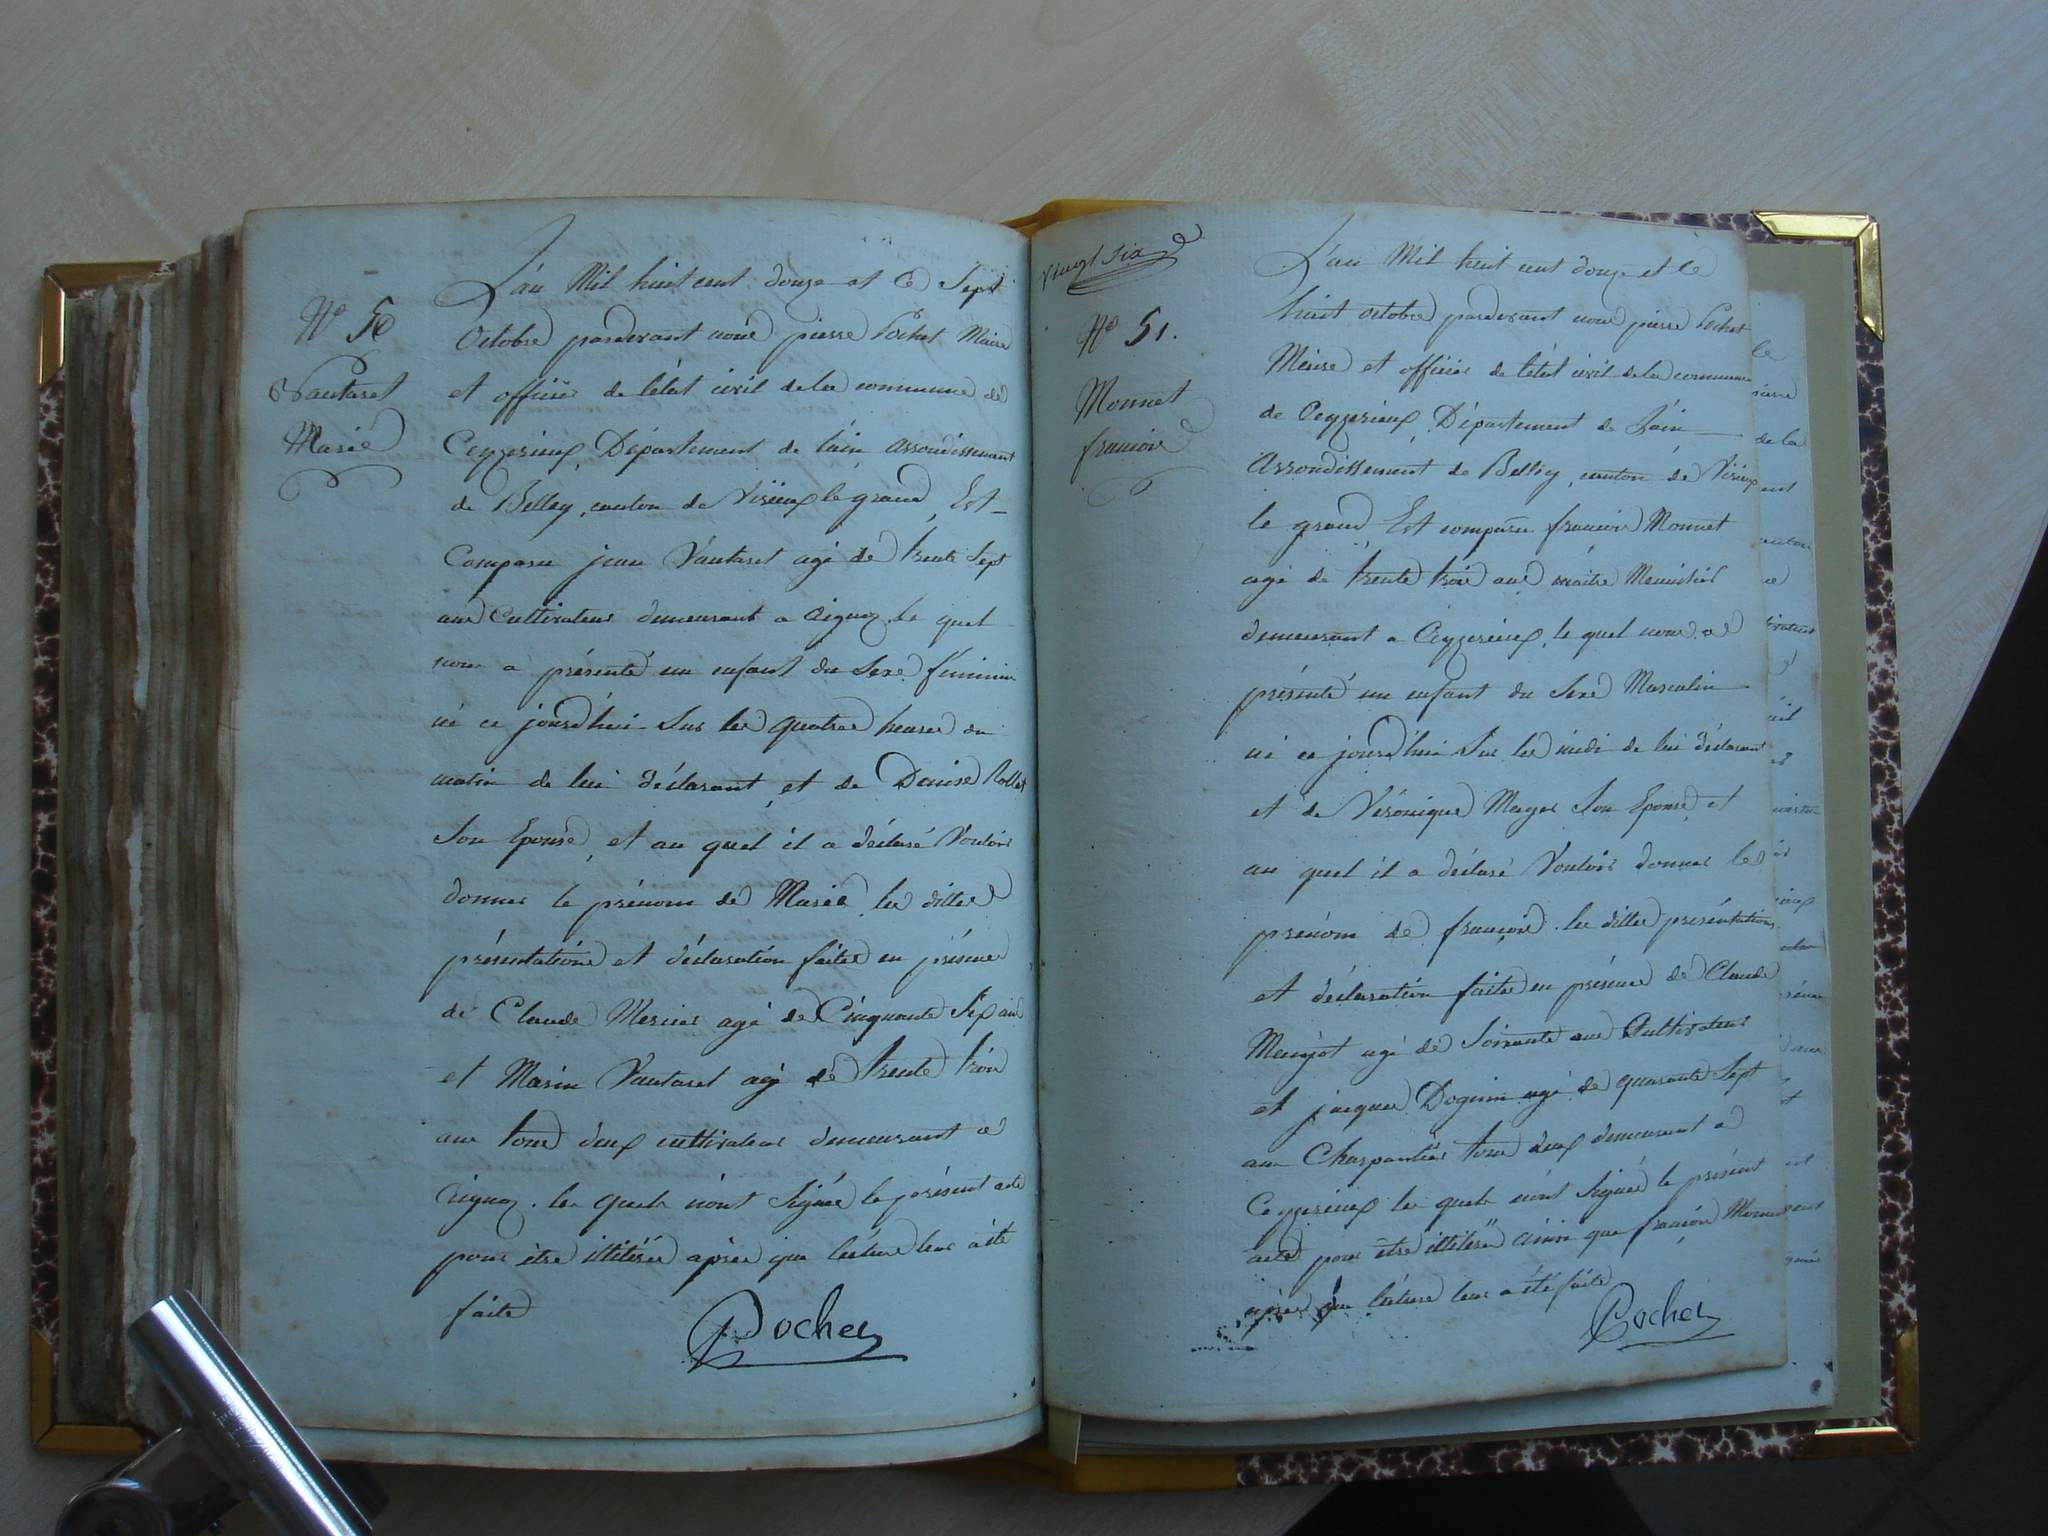 N° 50
Vautaret
Marie
L'an Mil huit cent douze et le Sept
Octobre pardevant nous pierre Pochet Maire
et officier de l'état civil de la commune de
Ceyzerieux, Département de l'ain, arrondissement
de Belley, canton de Virieux le grand, Est
Comparu jean Vautaret agé de trente Sept
ans Cultivateur demeurant a aignoz. le quel
nous a présenté un enfant du Sexe féminin
né ce jourd'hui Sur les quatres heures du
matin de lui déclarant, et de Denise Rollet
Son Epouse, et au quel il a déclaré Vouloir
donner le prénom de Marie les dittes
présentations et déclaration faites en présence
de Claude Mercier agé de Cinquante Six ans
et Marin Vautaret agé de trente trois
ans tous deux cultivateurs demeurant a
aignoz. les quels n'ont Signés le présent acte
pour être illitérés après que lecture leur a été
faite
Pochet
vingt Six
N° 51.
Monnet
francois
L'an Mil huit cent douze et le
huit octobre pardevant nous pierre Pochet
Maire et officier de l'état civil de la commune
de Ceyzerieux, Département de L'ain
Arrondissement de Belley, canton de Virieux
le grand, Est comparu francois Monnet
agé de trente trois ans maitre Menuisier
demeurant a Ceyzerieux, le quel nous a
présenté un enfant du Sexe Masculin
né ce jourd'hui Sur les midi de lui déclarant
et de Véronique Son Epouse, et
au quel il a déclaré Vouloir donner le
prénom de francois. les dittes présentations
et déclaration faites en présence de Claude
agé de Soixante ans Cultivateur
et jacques agé de quarante Sept
ans Charpentier tous deux demeurant a
Ceyzerieux les quels n'ont Signés le présent
acte pour être illitérés ainsi que francois Monnet
après que lecture leur a été faite
Pochet